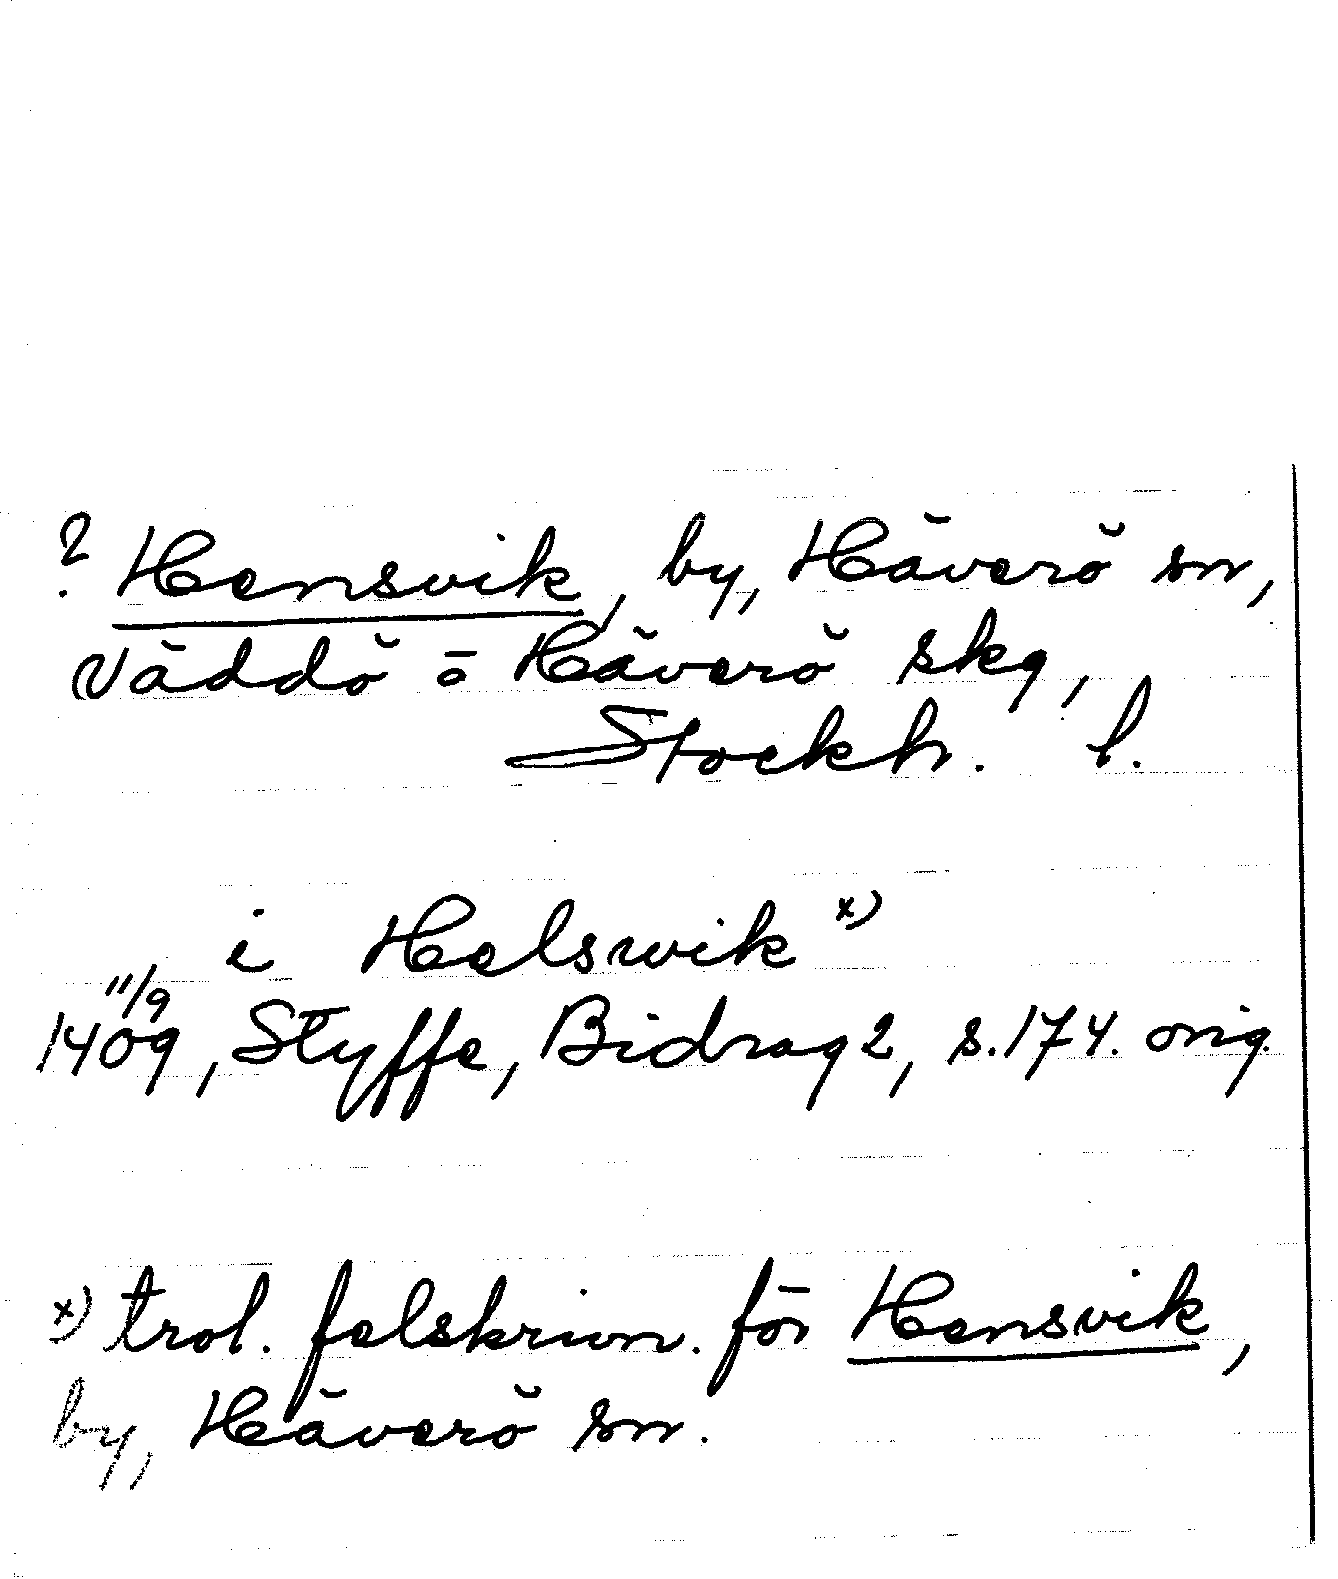 ? Hensvik, by, Häverö sn,
Väddö o Häverö skg,
Stockh. l.
i Helswik x)
11/9
1409, Styffe, Bidrag 2, s. 174. orig.
x) trol. felskrivn. för Hensvik,
by, Häverö sn.